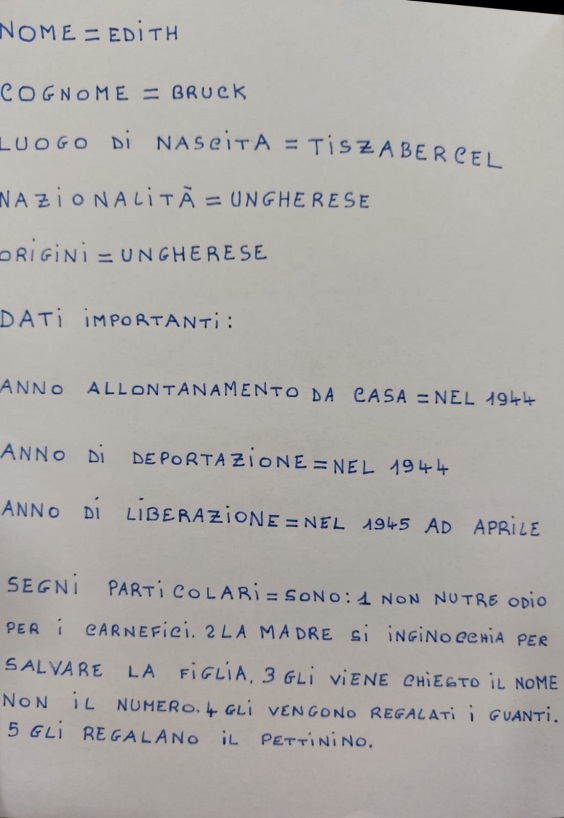 NOME = EDITH
COGNOME = BRUCK
LUOGO DI NASCITA = TISZABERCEL
NAZIONALITÀ = UNGHERESE
ORIGINI = UNGHERESE
DATI IMPORTANTI:
ANNO ALLONTANAMENTO DA CASA = NEL 1944
ANNO DI DEPORTAZIONE = NEL 1944
ANNO DI LIBERAZIONE = NEL 1945 AD APRILE
SEGNI PARTICOLARI = SONO: 1 NON NUTRE ODIO
PER I CARNEFICI. 2 LA MADRE SI INGINOCCHIA PER
SALVARE LA FIGLIA. 3 GLI VIENE CHIESTO IL NOME
NON IL NUMERO. 4 GLI VENGONO REGALATI I GUANTI.
5 GLI REGALANO IL PETTININO.